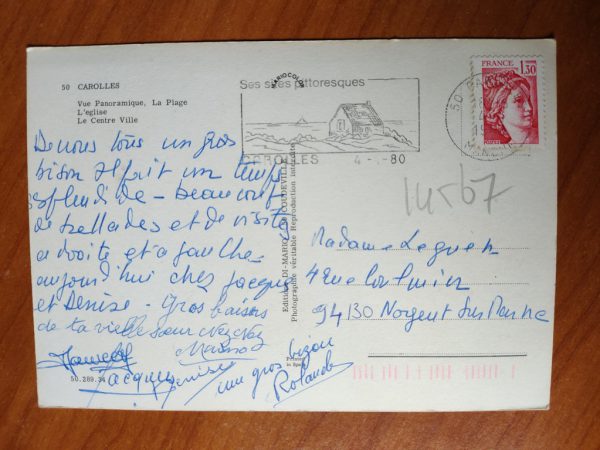 50 CAROLLES
Vue Panoramique, La Plage
L'eglise
Le Centre Ville
De nous tous un gros
bison Il fait un temps
splendide - beaucoup
de ballades et de visites
a droite et a gauche
aujourd'hui chez Jacques
et Denise - Gros baisers
de ta vieille sœur
Jacques Denise
un gros bizou
Rolande
50.289.34
Ses sites pittoresques
MARIOCOLOR
CAROLLES 4 - - 80
50
FRANCE
1,30
14 b7
Editions DI-MARIO
Photographie véritable Reproduction interdite
Printed
in Spain
Madame Leguen
4 Rue Coulmier
94130 Nogent sur Marne